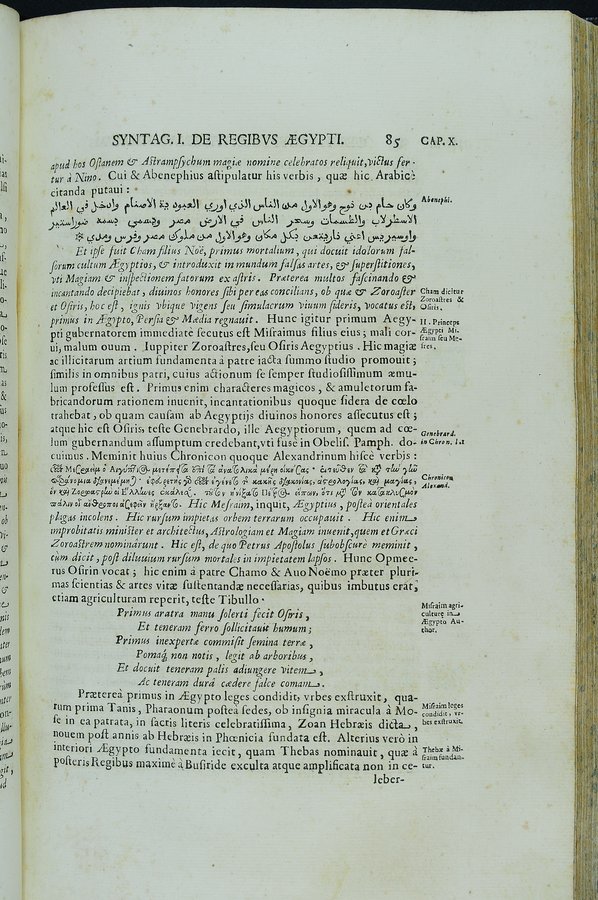 SYNTAG. I. DE REGIBVS ÆGYPTI. 85 CAP. X.
apud hos Ostanem & Astrampsychum magiæ nomine celebratos reliquit, victus fer-
tur à Nino. Cui & Abenephius astipulatur his verbis, quæ hic Arabicè
citanda putaui:
Abenephi.
وكان حام بن نوح وهو الاول من الناس الذي اوري العبودية الاصنام وادخل في العالم
الاسطرلاب والقسمات وسحر الناس في الارض مصر ويسمي بسمه ضوراستير
واوسيريس اعني
Et ipse fuit Cham filius Noë, primus mortalium, qui docuit idolorum fal-
sorum cultum Ægyptios, & introduxit in mundum falsas artes, & superstitiones,
vti Magiam & inspectionem fatorum ex astris. Præterea multos fascinando &
incantando decipiebat, diuinos honores sibi per eas concilians, ob quæ & Zoroaster
et Osiris, hoc est, ignis vbique vigens seu simulacrum viuum sideris, vocatus est,
primus in Ægypto, Persia & Mædia regnauit. Hunc igitur primum Aegy-
pti gubernatorem immediatè secutus est Misraimus filius eius; mali cor-
ui, malum ouum. Iuppiter Zoroastres, seu Osiris Aegyptius. Hic magiæ
ac illicitarum artium fundamenta à patre iacta summo studio promouit;
similis in omnibus patri, cuius actionum se semper studiosissimum æmu-
lum professus est. Primus enim characteres magicos, & amuletorum fa-
bricandorum rationem inuenit, incantationibus quoque sidera de cœlo
trahebat, ob quam causam ab Aegyptijs diuinos honores assecutus est;
atque hic est Osiris, teste Genebrardo, ille Aegyptiorum, quem ad cœ-
lum gubernandum assumptum credebant, vti fusè in Obelis. Pamph. do-
cuimus. Meminit huius Chronicon quoque Alexandrinum hisce verbis:
Cham dicitur
Zoroastres &
Osiris.
II. Princeps
Ægypti Mi-
sraim seu Me-
stres.
Genebrard.
in Chron. l.1
Chronicon
Alexand.
Hic Mesraim, inquit, Ægyptius, posteà orientales
plagas incolens. Hic rursum impietas orbem terrarum occupauit. Hic enim
improbitatis minister et architectus, Astrologiam et Magiam inuenit, quem et Græci
Zoroastrem nominârunt. Hic est, de quo Petrus Apostolus subobscurè meminit,
cùm dicit, post diluuium rursum mortales in impietatem lapsos. Hunc Opmee-
rus Osirin vocat; hic enim à patre Chamo & Auo Noëmo præter pluri-
mas scientias & artes vitæ sustentandæ necessarias, quibus imbutus erat,
etiam agriculturam reperit, teste Tibullo.
Primus aratra manu solerti fecit Osiris,
Et teneram ferro sollicitauit humum;
Primus inexpertæ commisit semina terræ,
Pomaq́ non notis, legit ab arboribus,
Et docuit teneram palis adiungere vitem,
Ac teneram durâ cædere falce comam.
Misraim agri-
culturę in
Ægypto Au-
thor.
Præterea primus in Aegypto leges condidit, vrbes exstruxit, qua-
rum prima Tanis, Pharaonum posteà sedes, ob insignia miracula à Mo-
se in ea patrata, in sactis literis celebratissima, Zoan Hebræis dicta,
nouem post annis ab Hebræis in Phœnicia fundata est. Alterius verò in
interiori Ægypto fundamenta iecit, quam Thebas nominauit, quæ à
posteris Regibus maximè à Busiride exculta atque amplificata non in ce-
leber-
Misraim leges
condidit, vr-
bes exstruxit.
Thebæ à Mi-
sraim fundan-
tur.